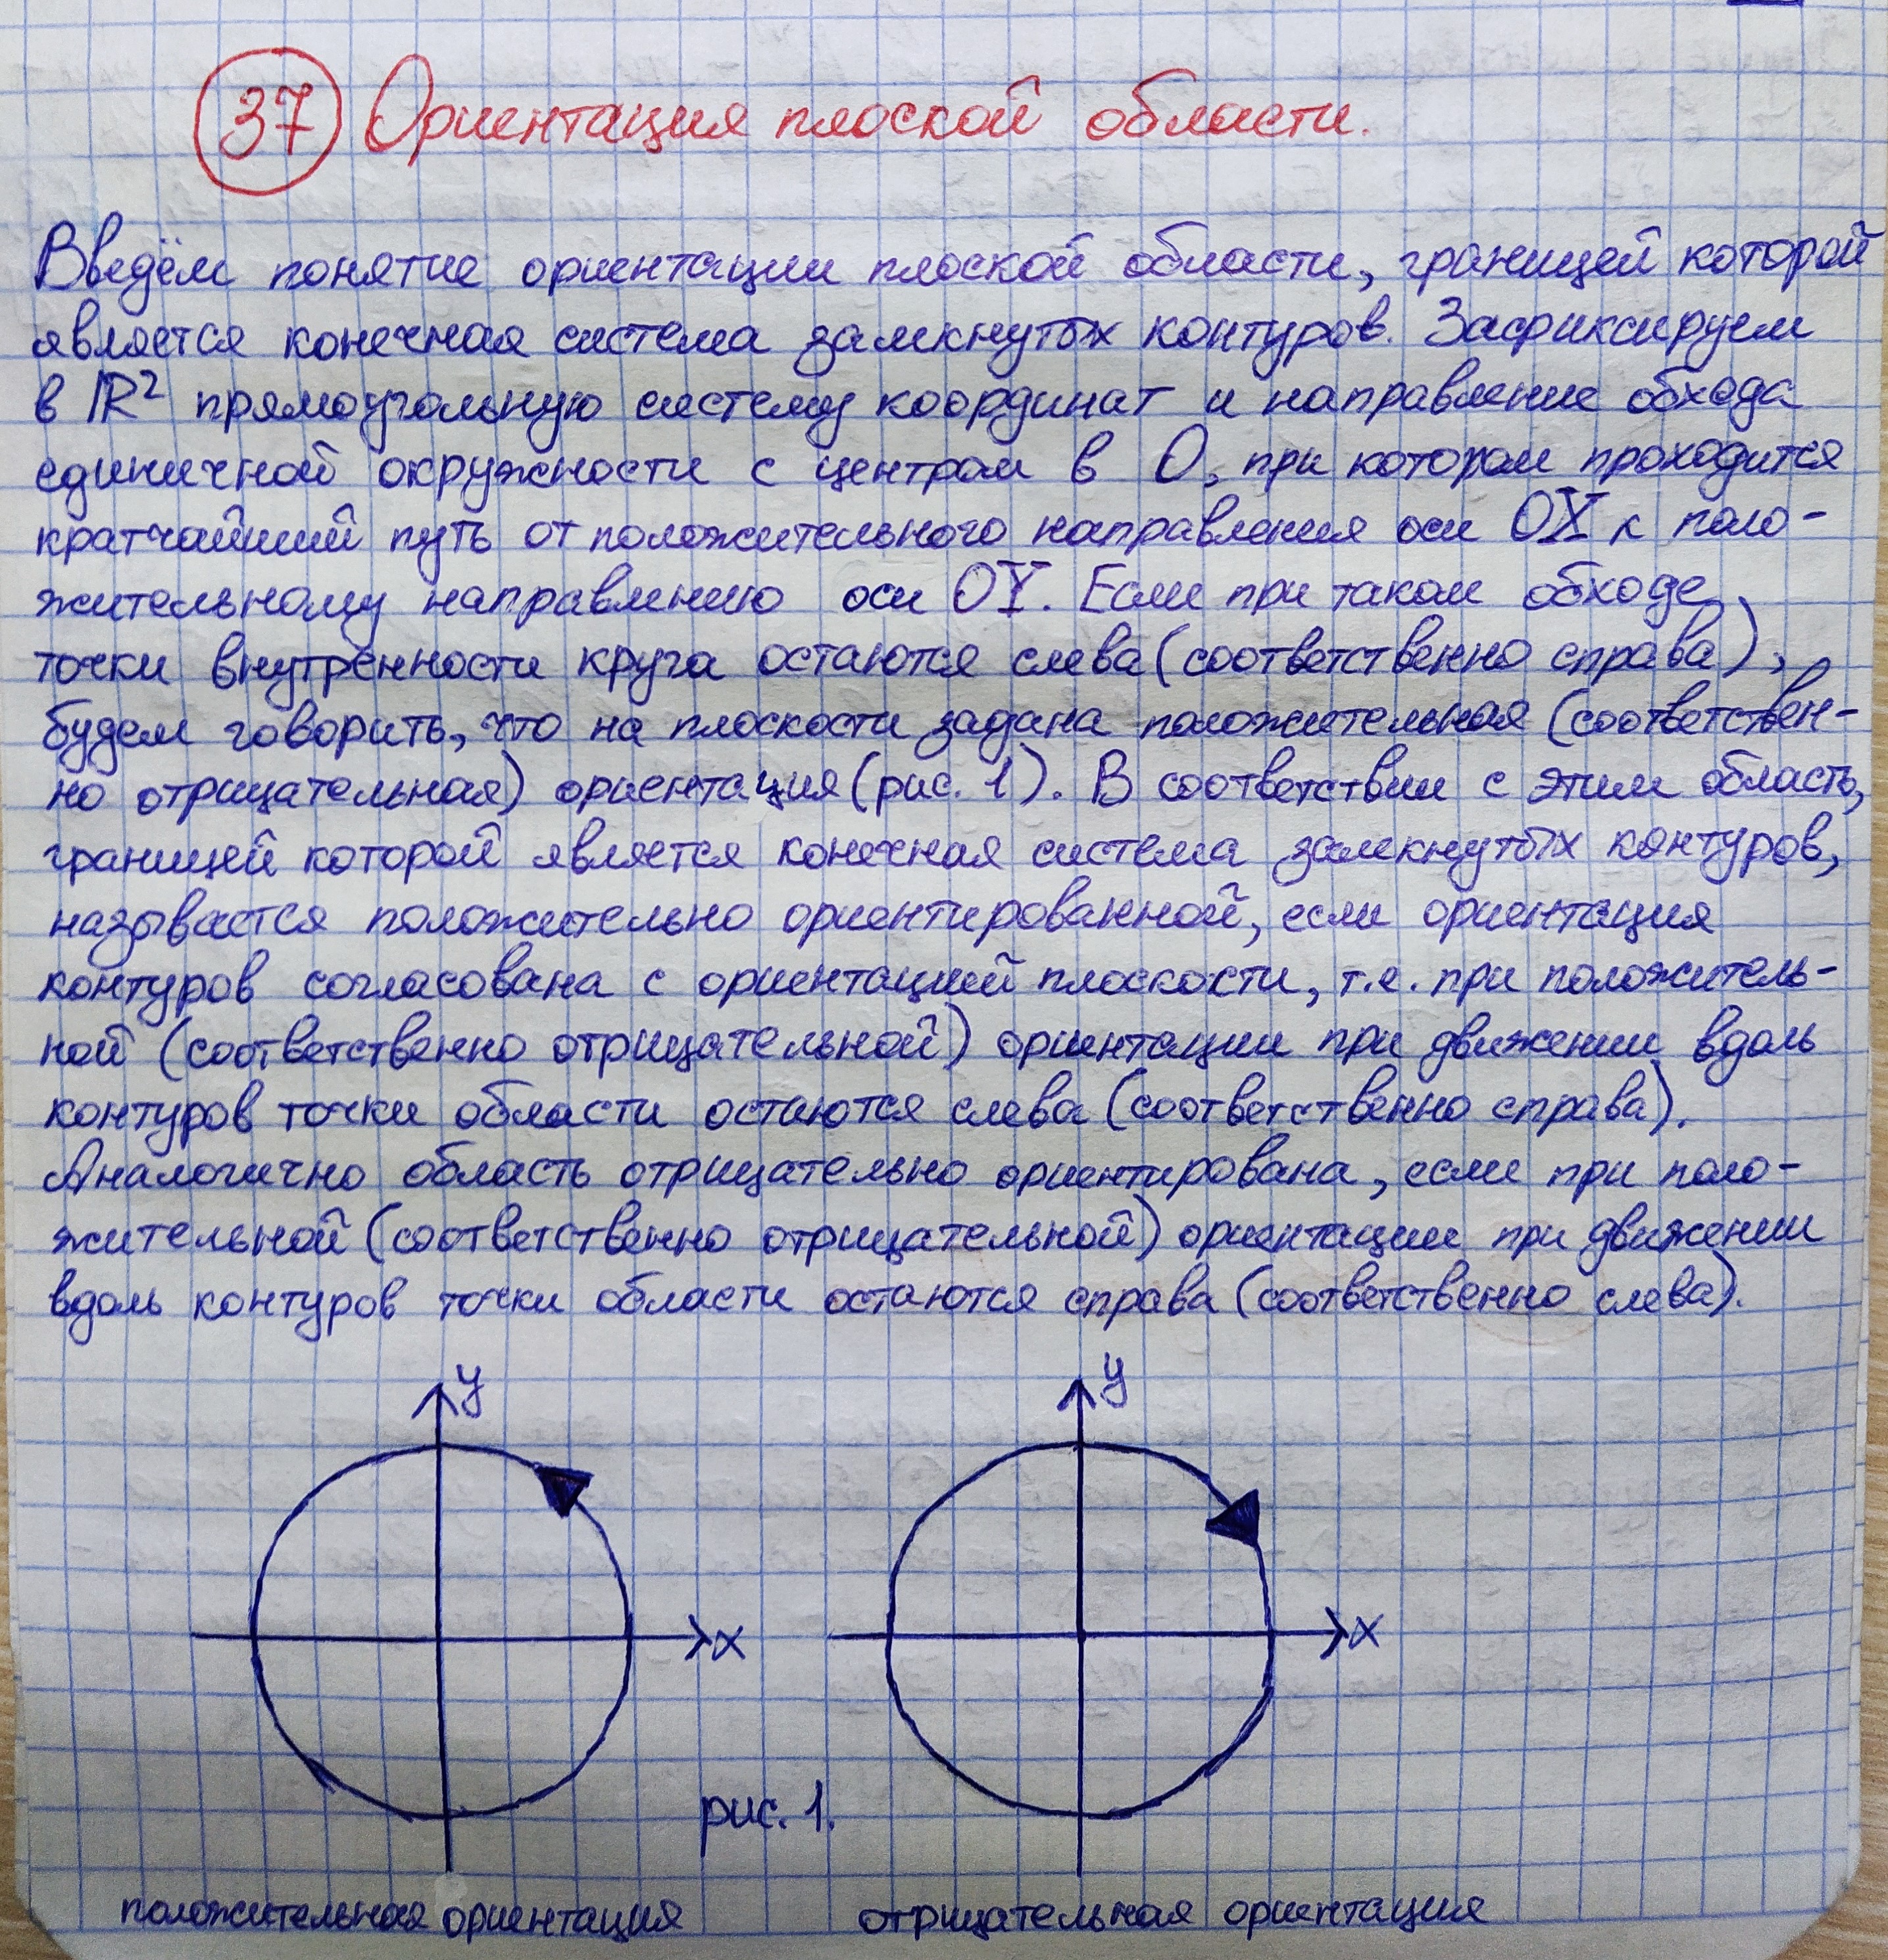 37 Ориентация плоской области.
Введём понятие ориентации плоской области, границей которой
является конечная система замкнутых контуров. Зафиксируем
в ℝ² прямоугольную систему координат и направление обхода
единичной окружности с центром в О, при котором проходится
кратчайший путь от положительного направления оси OX к поло-
жительному направлению оси OY. Если при таком обходе
точки внутренности круга остаются слева (соответственно справа),
будем говорить, что на плоскости задана положительная (соответствен-
но отрицательная) ориентация (рис. 1). В соответствии с этим область,
границей которой является конечная система замкнутых контуров,
называется положительно ориентированной, если ориентация
контуров согласована с ориентацией плоскости, т.е. при положитель-
ной (соответственно отрицательной) ориентации при движении вдоль
контуров точки области остаются слева (соответственно справа).
Аналогично область отрицательно ориентирована, если при поло-
жительной (соответственно отрицательной) ориентации при движении
вдоль контуров точки области остаются справа (соответственно слева).
y
y
x
x
рис. 1.
положительная ориентация
отрицательная ориентация